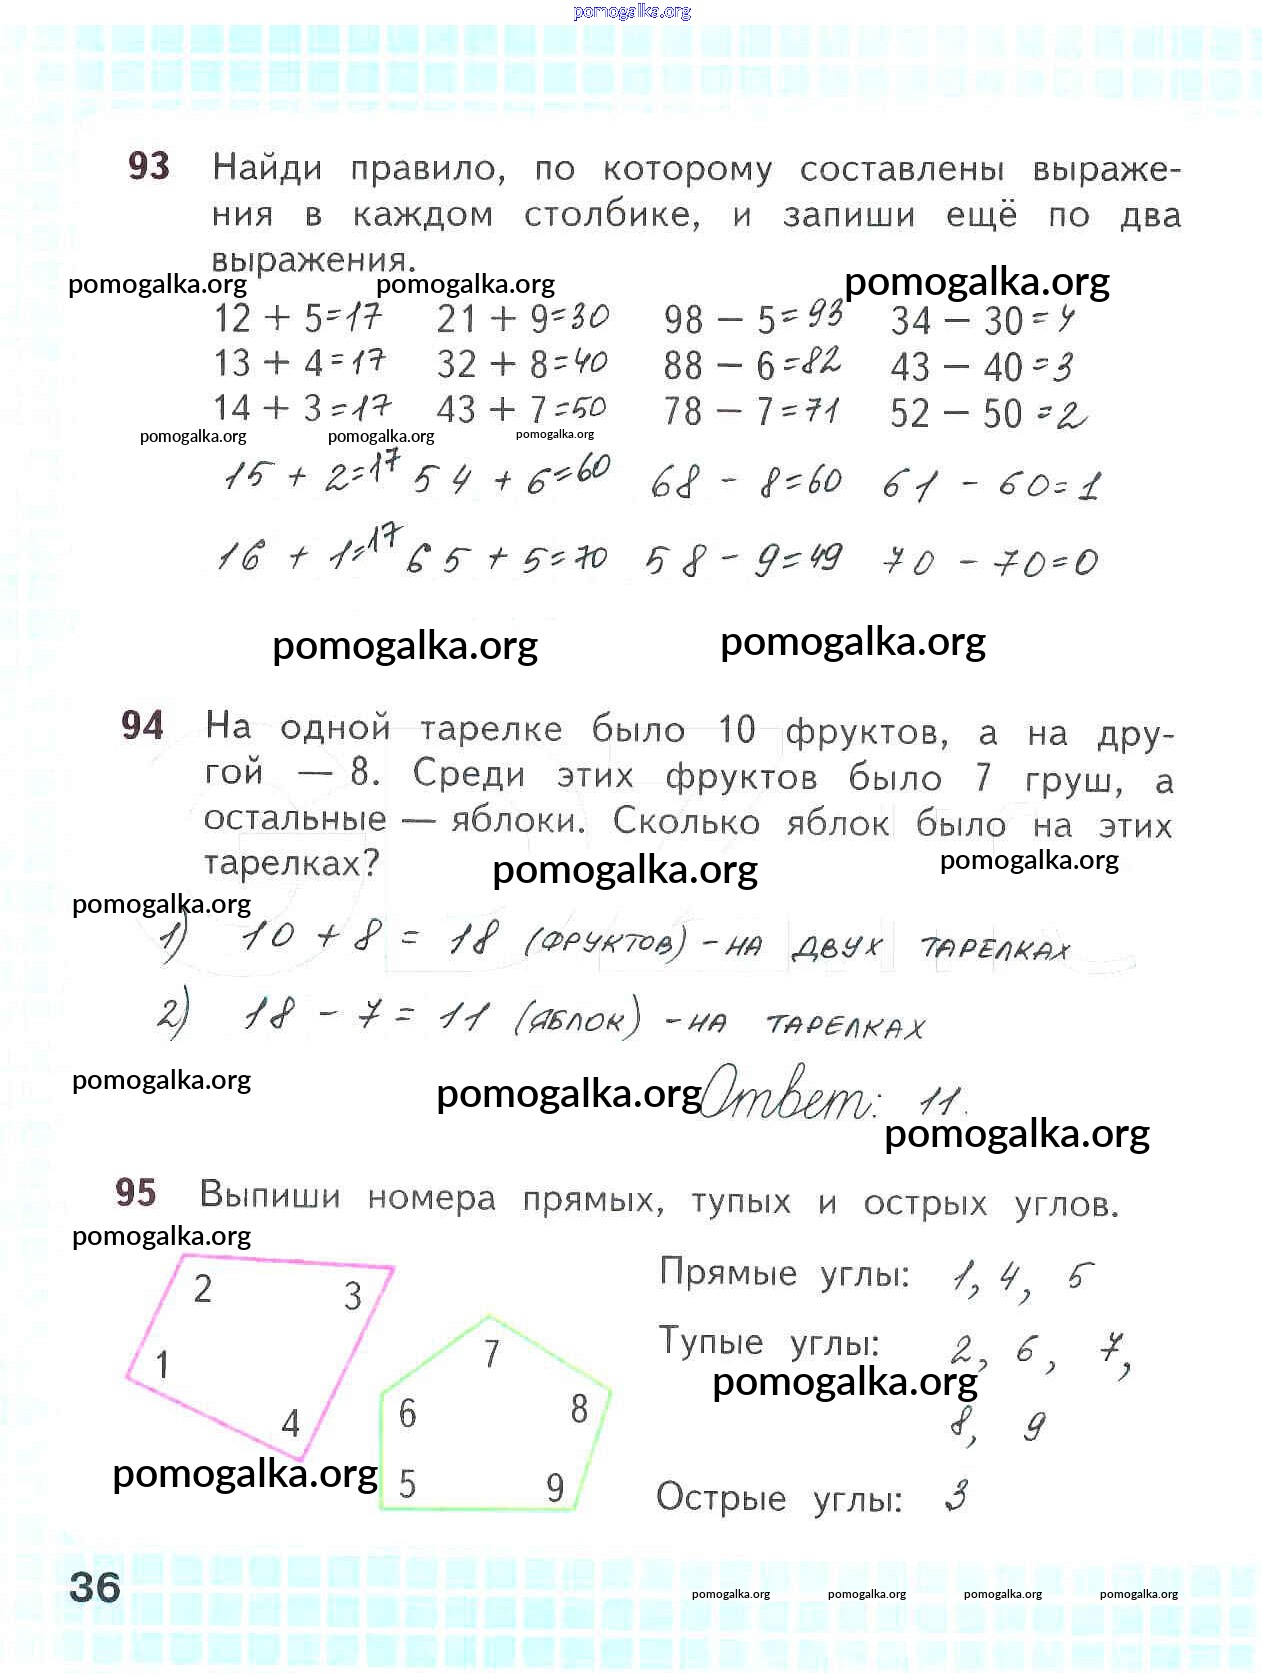 pomogalka.org
93 Найди правило, по которому составлены выраже-
ния в каждом столбике, и запиши ещё по два
выражения.
pomogalka.org pomogalka.org pomogalka.org
12 + 5=17 21 + 9=30 98 – 5=93 34 – 30=4
13 + 4=17 32 + 8=40 88 – 6=82 43 – 40=3
14 + 3=17 43 + 7=50 78 – 7=71 52 – 50=2
pomogalka.org pomogalka.org pomogalka.org
15 + 2=17 54 + 6=60 68 - 8=60 61 - 60=1
16 + 1=17 65 + 5=70 58 - 9=49 70 - 70=0
pomogalka.org pomogalka.org
94 На одной тарелке было 10 фруктов, а на дру-
гой — 8. Среди этих фруктов было 7 груш, а
остальные — яблоки. Сколько яблок было на этих
тарелках?
pomogalka.org pomogalka.org
pomogalka.org
1) 10 + 8 = 18 (фруктов) - на двух тарелках
2) 18 - 7 = 11 (яблок) - на тарелках
pomogalka.org pomogalka.org Ответ: 11.
pomogalka.org
95 Выпиши номера прямых, тупых и острых углов.
pomogalka.org
2 3 1 4
7 6 8 5 9
Прямые углы: 1, 4, 5
Тупые углы: 2, 6, 7,
pomogalka.org
8, 9
pomogalka.org
Острые углы: 3
36
pomogalka.org pomogalka.org pomogalka.org pomogalka.org